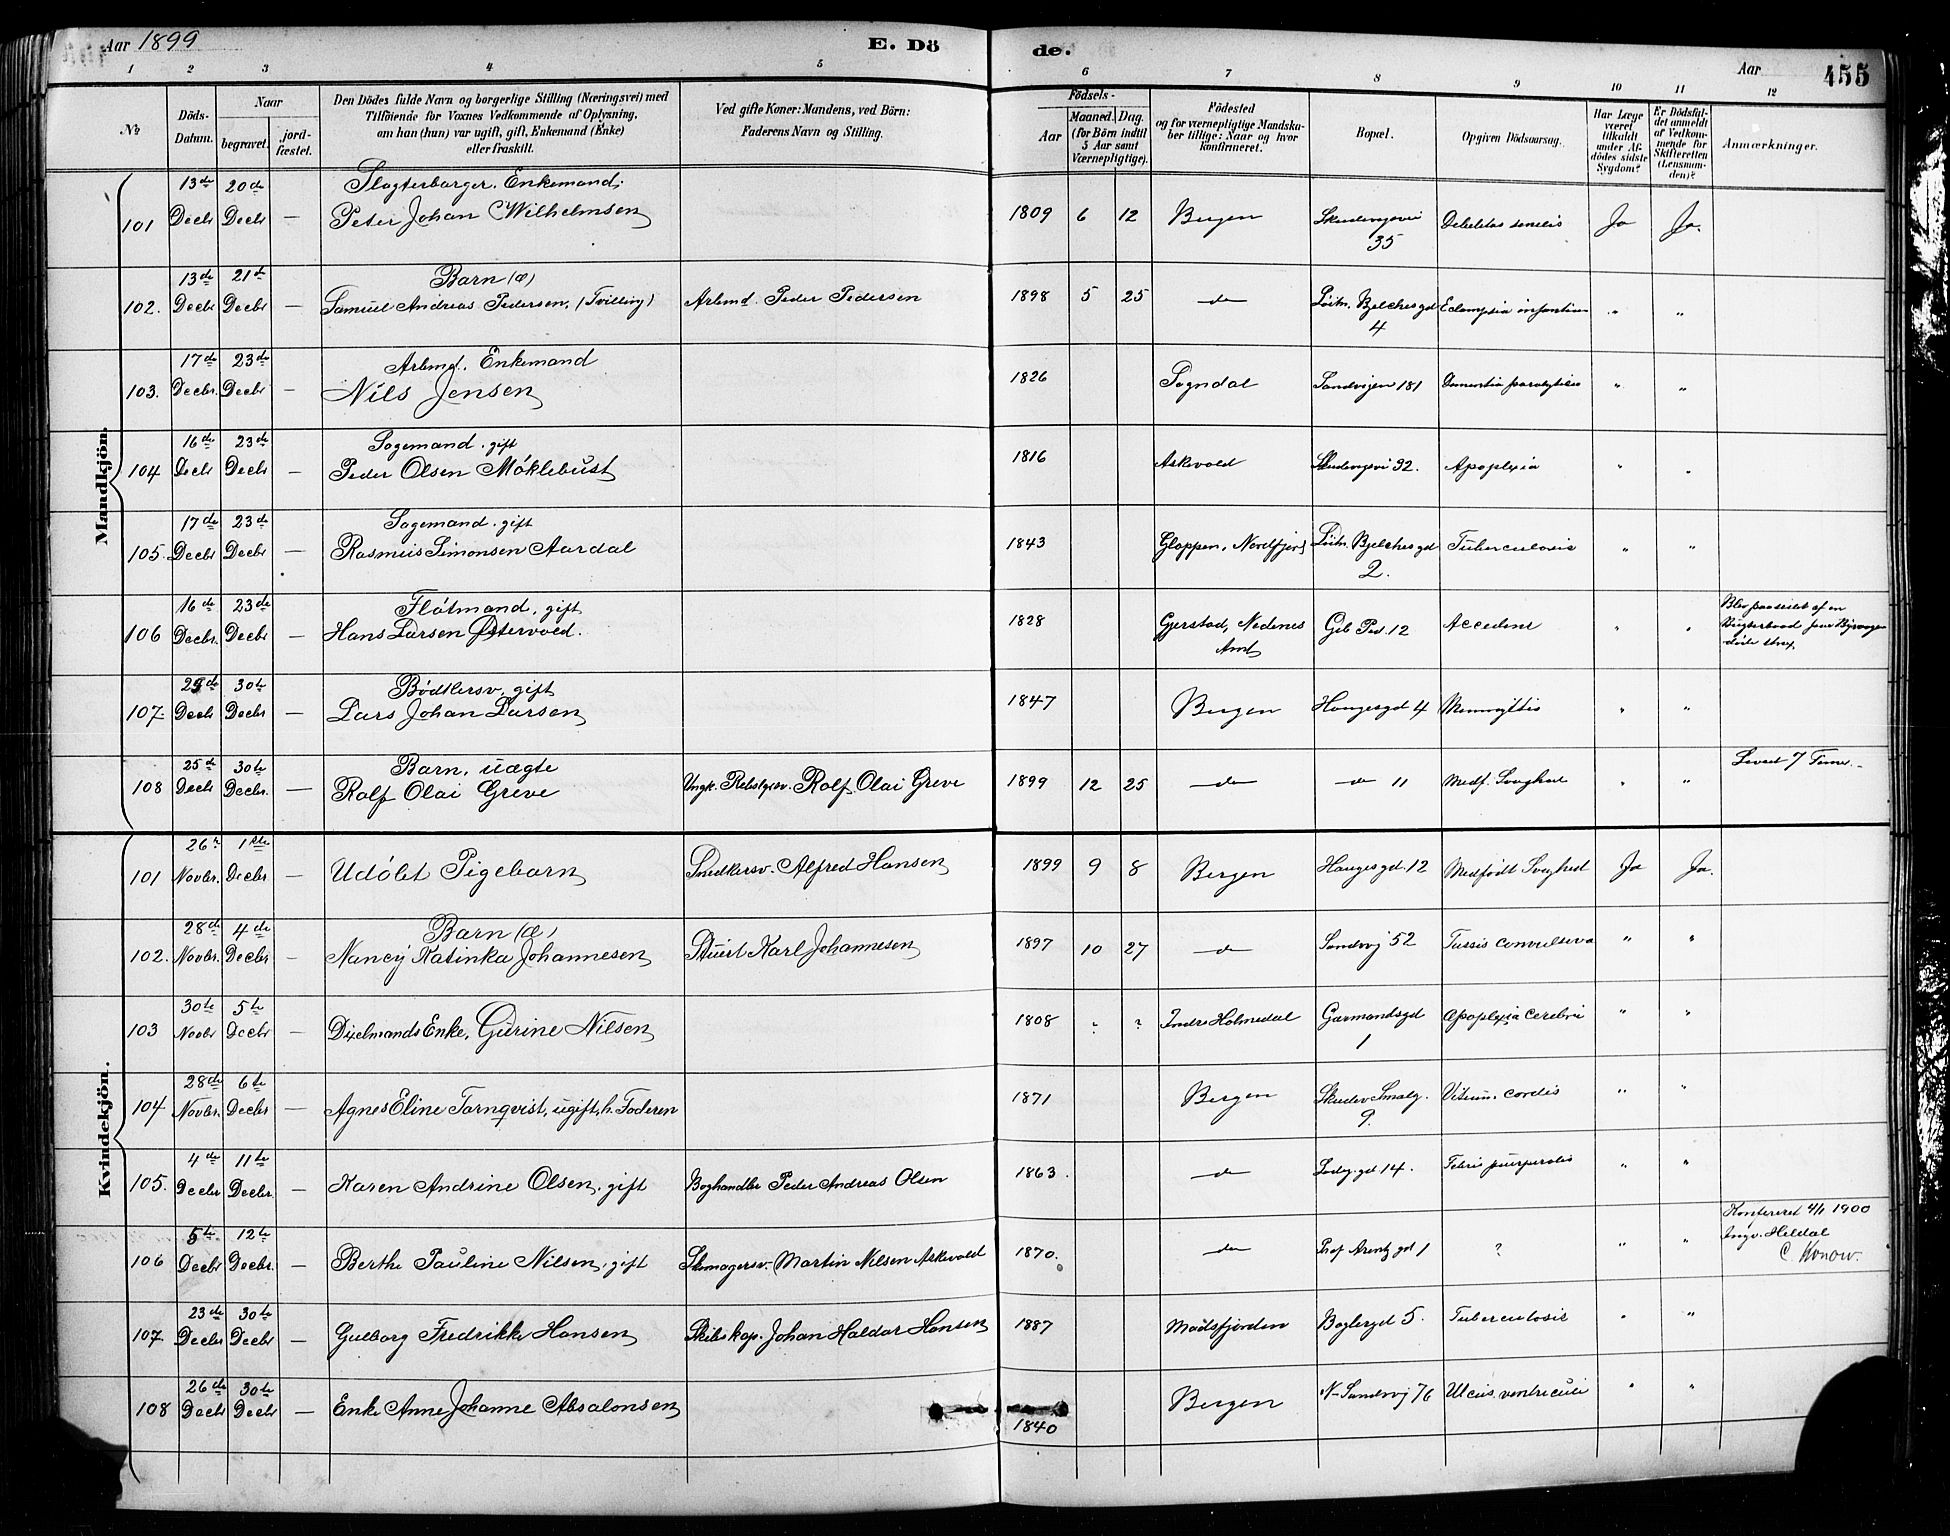 Aar 1899
E. Dö
de.
Aar
455
1 2 3 4 5 6 7 8 9 10 11 12
No
Döds-Datum.
Naar
begravet.
jord-fæstet.
Den Dödes fulde Navn og borgerlige Stilling (Næringsvei) med
Tilföiende for Voxnes Vedkommende af Oplysning,
om han (hun) var ugift, gift, Enkemand (Enke)
eller fraskilt.
Ved gifte Koner: Mandens, ved Börn:
Faderens Navn og Stilling.
Födsels-
Aar
Maaned. Dag.
(for Börn indtil
5 Aar samt
Værnepligtige).
Födested
og for værnepligtige Mandska-
ber tillige: Naar og hvor
konfirmeret.
Bopæl.
Opgiven Dödsaarsag.
Har Læge
været
tilkaldt
under Af-
dödes sidste
Sygdom?
Er Dödsfal-
det anmeldt
af Vedkom-
mende for
Skifteretten
(Lensman-
den)?
Anmærkninger.
Mandkjön.
101 13de Decbr 20de Decbr — Slagterborger. Enkemand. Peter Johan Wilhelmsen 1809 6 12 Bergen 35 Debilitas senilis Ja Ja.
102. 13de Decbr 21de Decbr — Barn (æ) Samuel Andreas Pedersen, (Tvilling) Arbmd. Peder Pedersen 1898 5 25 — do — Löitn. Bjelckes gd 4 Eclampsia infantum " "
103. 17de Decbr. 23de Decbr — Arbmd. Enkemand Nils Jensen 1826 Sogndal Sandvigen 181 Dementia paralytica " "
104 16de Decbr 23de Decbr — gift Peder Olsen Möklebust 1816 Askevold 32. Apoplexia " "
105. 17de Decbr 23de Decbr — gift Rasmus Simonsen Aardal 1843 Gloppen, Nordfjord Löitn. Bjelckes gd 2. Tuberculosis " "
106 16de Decbr. 23de Decbr — Flötmand, gift Hans Larsen Østervold. 1828 Gjerstad, Nedenes Amt 12 Accedens " " Blev paaseilet af en
107. Decbr 30te Decbr — Bödkersv. gift Lars Johan Larsen 1847 Bergen Haugesgd 4 Meningitis " "
108 25de Decbr 30te Decbr. — Barn, uægte Rolf Olai Greve Ungk. Rolf Olai Greve 1899 12 25 — do — — do 11 Medf. Svaghed " " Levede 7 Timer. —
Kvindekjön.
101 26de Novbr. 1ste Decbr — Udöbt Pigebarn Snedkersv. Alfred Hansen 1899 9 8 Bergen Haugesgd. 12 Medfödt Svaghed Ja Ja.
102. 28de Novbr. 4de Decbr — Barn (æ) Nancy Katinka Johannesen Stuert Karl Johannesen 1897 10 27 — do Sandvg 52 Tussis convulsiva " "
103 30te Novbr 5te Decbr — Enke, Gurine Nilsen 1808 ? ? Indre Holmedal Garmandsgd 1 Apoplexia cerebri " "
104 28de Novbr. 6te Decbr. — Agnes Eline Tornqvist, ugift, h. Faderen 1871 Bergen Skudev Smalg. 9. Vitium cordis " "
105. 4de Decbr 11te Decbr. — Karen Andrine Olsen, gift Boghandler Peder Andreas Olsen 1863 — do 14. Febris puerperalis " "
106 5te Decbr 12te Decbr. — Berthe Pauline Nilsen, gift Skomagersv. Martin Nilsen Askevold 1870. — do Prof Arentz gd 1 ? " " Konfereret 4/1 1900 Ingv. Heldal C. Konow.
107. 23de Decbr 30te Decbr — Gulborg Fredrikke Hansen Skibskap. Johan Haldor Hansen 1887 Madsfjorden 5. Tuberculosis " "
108 26de Decbr 30te Decbr — Enke Anne Johanne Absalonsen 1840 Bergen N-Sandvg 76 Ulcus ventriculi " "